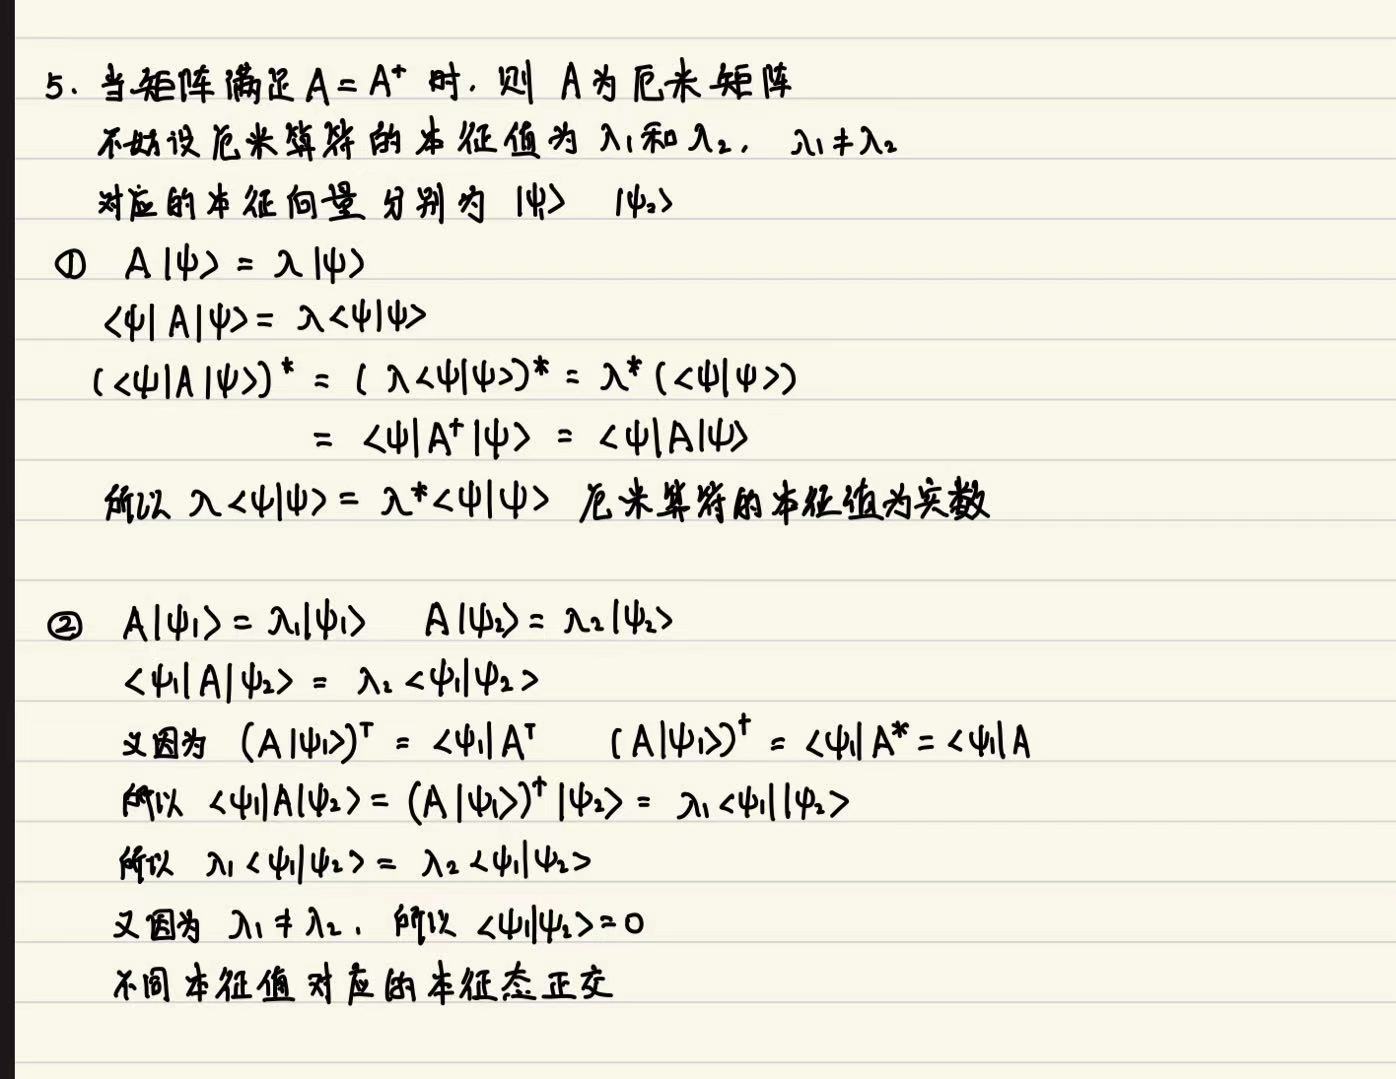 5. 当矩阵满足 A = A† 时, 则 A为厄米矩阵
不妨设厄米算符的本征值为 λ₁和λ₂, λ₁≠λ₂
对应的本征向量分别为 |ψ₁> |ψ₂>
① A|ψ> = λ|ψ>
<ψ|A|ψ> = λ<ψ|ψ>
(<ψ|A|ψ>)* = (λ<ψ|ψ>)* = λ*(<ψ|ψ>)
= <ψ|A†|ψ> = <ψ|A|ψ>
所以 λ<ψ|ψ> = λ*<ψ|ψ> 厄米算符的本征值为实数
② A|ψ₁> = λ₁|ψ₁> A|ψ₂> = λ₂|ψ₂>
<ψ₁|A|ψ₂> = λ₂<ψ₁|ψ₂>
又因为 (A|ψ₁>)ᵀ = <ψ₁|Aᵀ (A|ψ₁>)† = <ψ₁|A* = <ψ₁|A
所以 <ψ₁|A|ψ₂> = (A|ψ₁>)†|ψ₂> = λ₁<ψ₁||ψ₂>
所以 λ₁<ψ₁|ψ₂> = λ₂<ψ₁|ψ₂>
又因为 λ₁≠λ₂, 所以 <ψ₁|ψ₂>=0
不同本征值对应的本征态正交